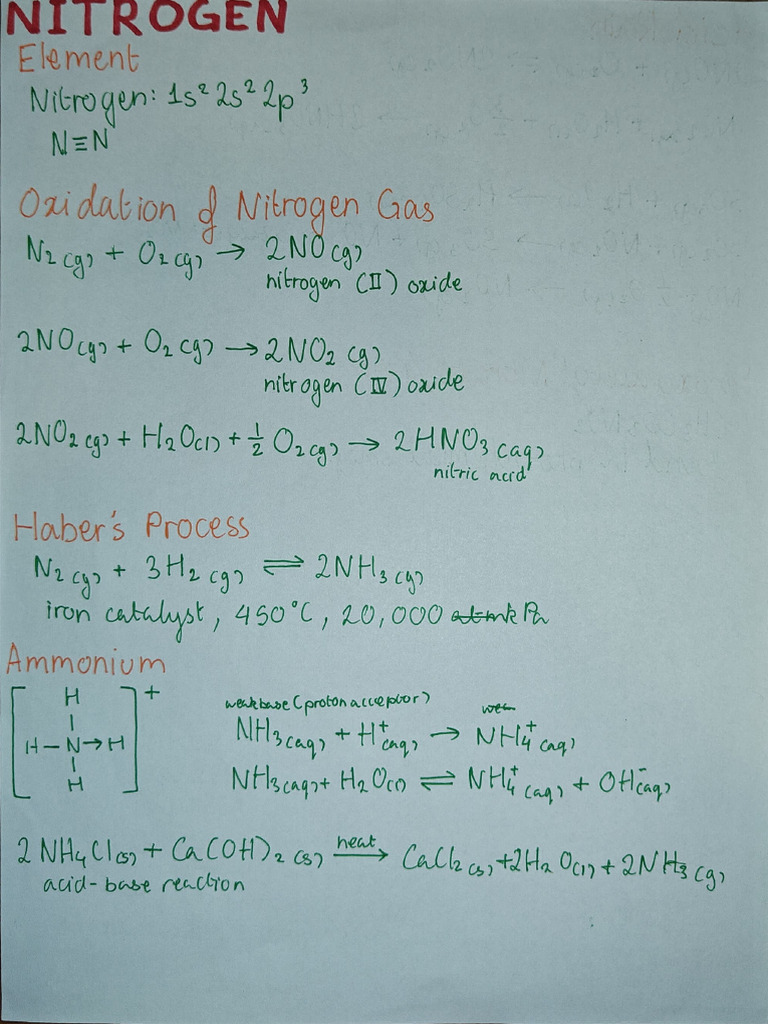 NITROGEN
Element
Nitrogen: 1s² 2s² 2p³
N≡N
Oxidation of Nitrogen Gas
N₂(g) + O₂(g) → 2NO(g)
nitrogen (II) oxide
2NO(g) + O₂(g) → 2NO₂(g)
nitrogen (IV) oxide
2NO₂(g) + H₂O(l) + ½ O₂(g) → 2HNO₃(aq)
nitric acid
Haber's Process
N₂(g) + 3H₂(g) ⇌ 2NH₃(g)
iron catalyst, 450°C, 20,000 kPa
Ammonium
[H H–N→H H]⁺
weak base (proton acceptor)
NH₃(aq) + H⁺(aq) → NH₄⁺(aq)
NH₃(aq) + H₂O(l) ⇌ NH₄⁺(aq) + OH⁻(aq)
2NH₄Cl(s) + Ca(OH)₂(s) heat→ CaCl₂(s) + 2H₂O(l) + 2NH₃(g)
acid-base reaction